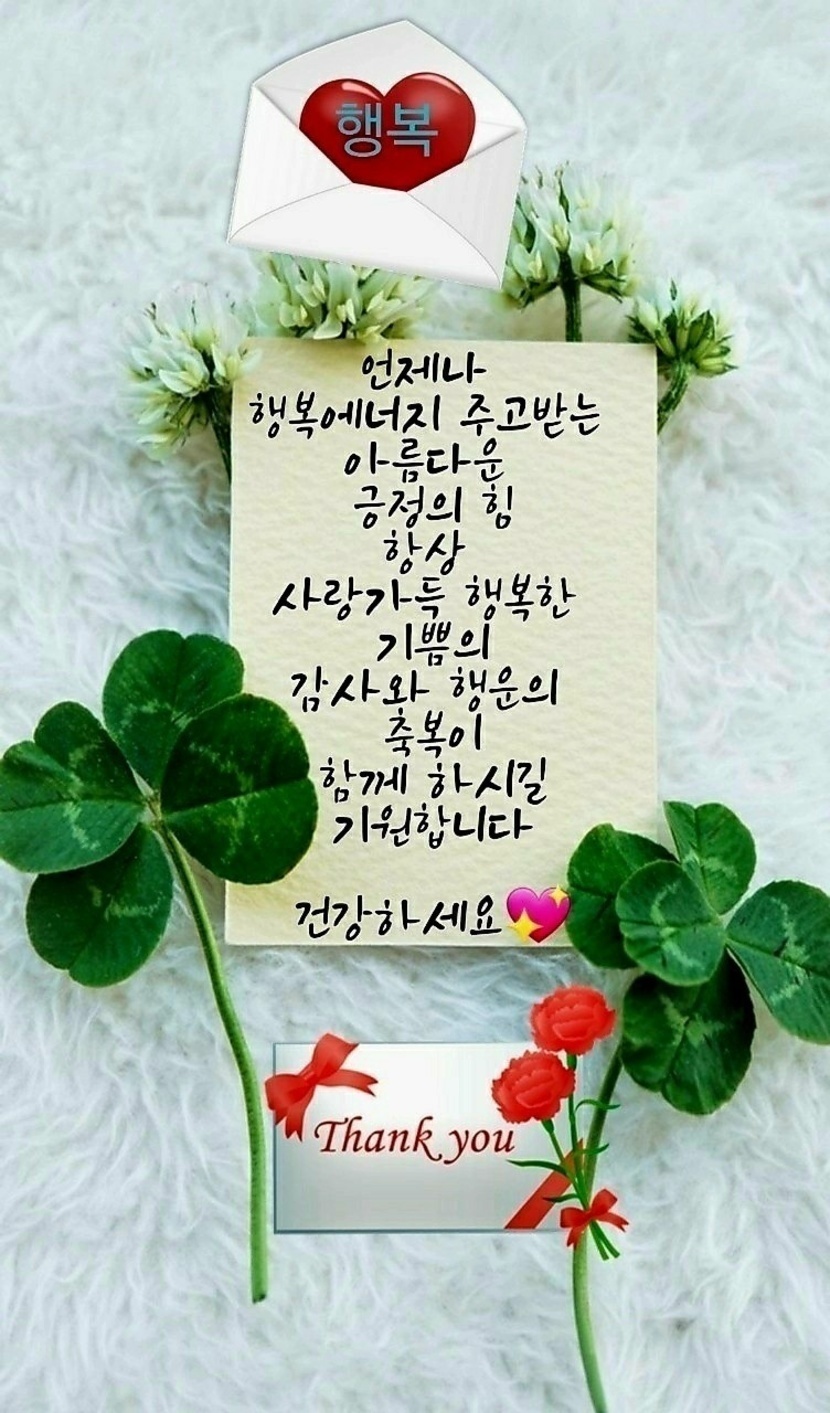 행복
언제나
행복에너지 주고받는
아름다운
긍정의 힘
항상
사랑가득 행복한
기쁨의
감사와 행운의
축복이
함께 하시길
기원합니다
건강하세요💖
Thank you